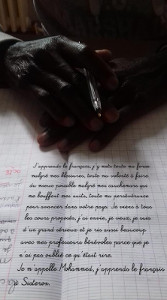 J'apprends le français, j'y mets toute ma force
malgré mes blessures, toute ma volonté à faire
du mieux possible malgré mes cauchemars qui
me bouffent mes nuits, toute ma persévérance
pour avancer dans votre pays. Je viens à tous
les cours proposés, j'ai envie, je veux, je suis
d'un grand sérieux et je ris aussi beaucoup
avec mes professeurs bénévoles parce que je
n'ai pas oublié ce qu'était rire.
Je m'appelle Mohammed, j'apprends le français
à Sisteron.